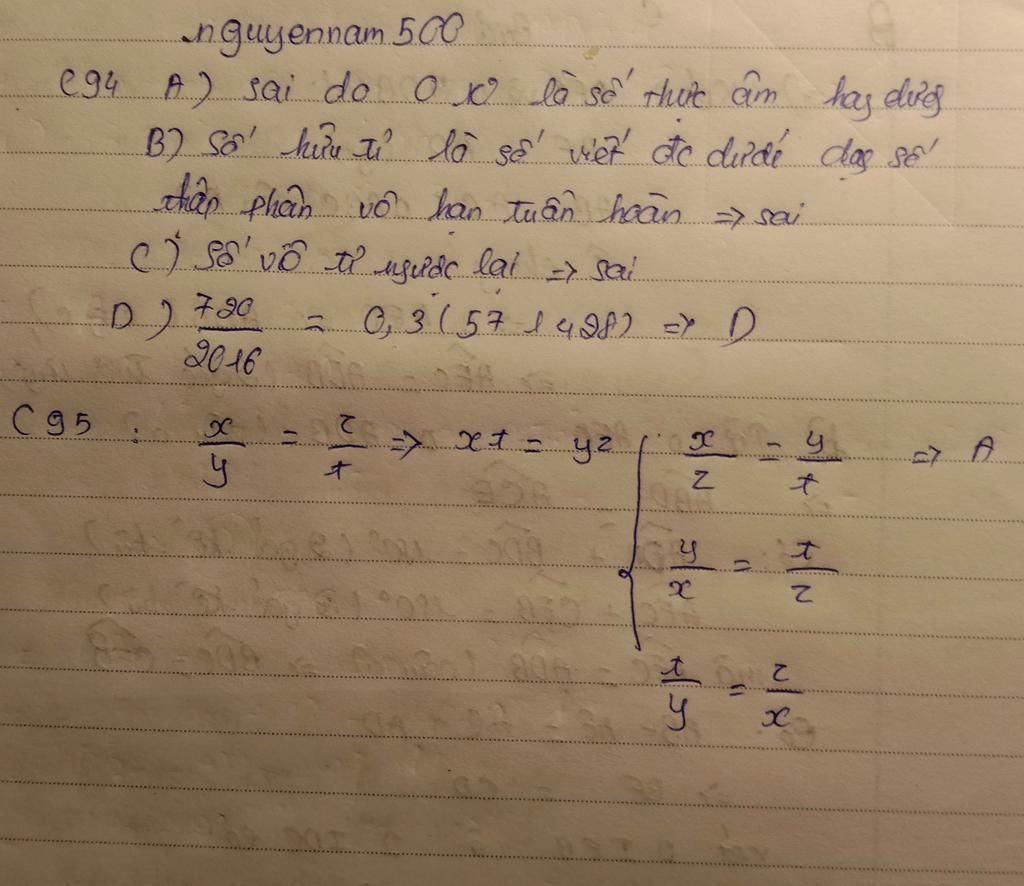 nguyennam500
C94 A) sai do 0 ko là số thực âm hay dương
B) số hữu tỉ là số viết đc dưới dạg số
thập phân vô hạn tuần hoàn => sai
C) số vô tỉ ngược lại => sai
D) 720/2016 = 0,3(571428) => D
C95 : x/y = z/t => xt = yz { x/z = y/t => A
y/x = t/z
t/y = z/x